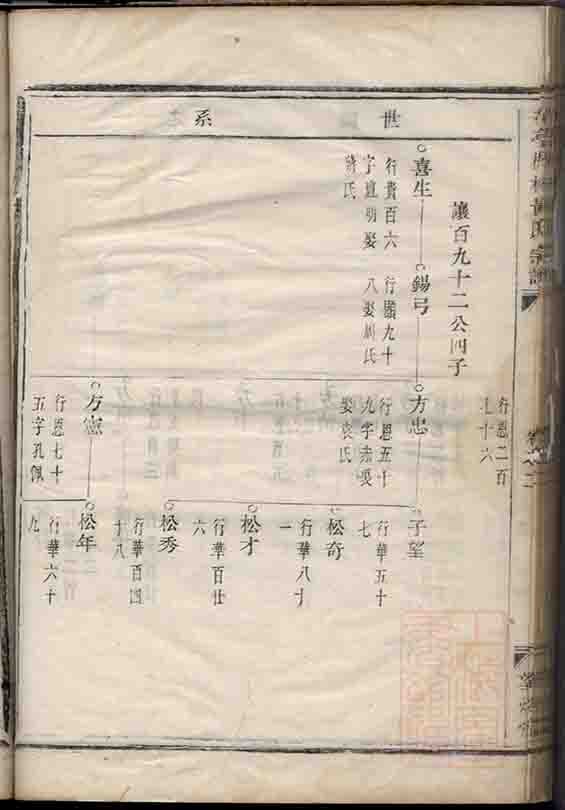 世系
行恩二百
七十六
讓百九十二公四子
喜生
行貴百六
字道明娶
蔣氏
錫弓
行國九十
八娶劉氏
方忠
行恩五十
九字赤
娶袁氏
子望
行華五十
七
松奇
行華八十
一
松才
行華百廿
六
松秀
行華百四
十八
方憲
行恩七十
五字孔佩
松年
行華六十
九